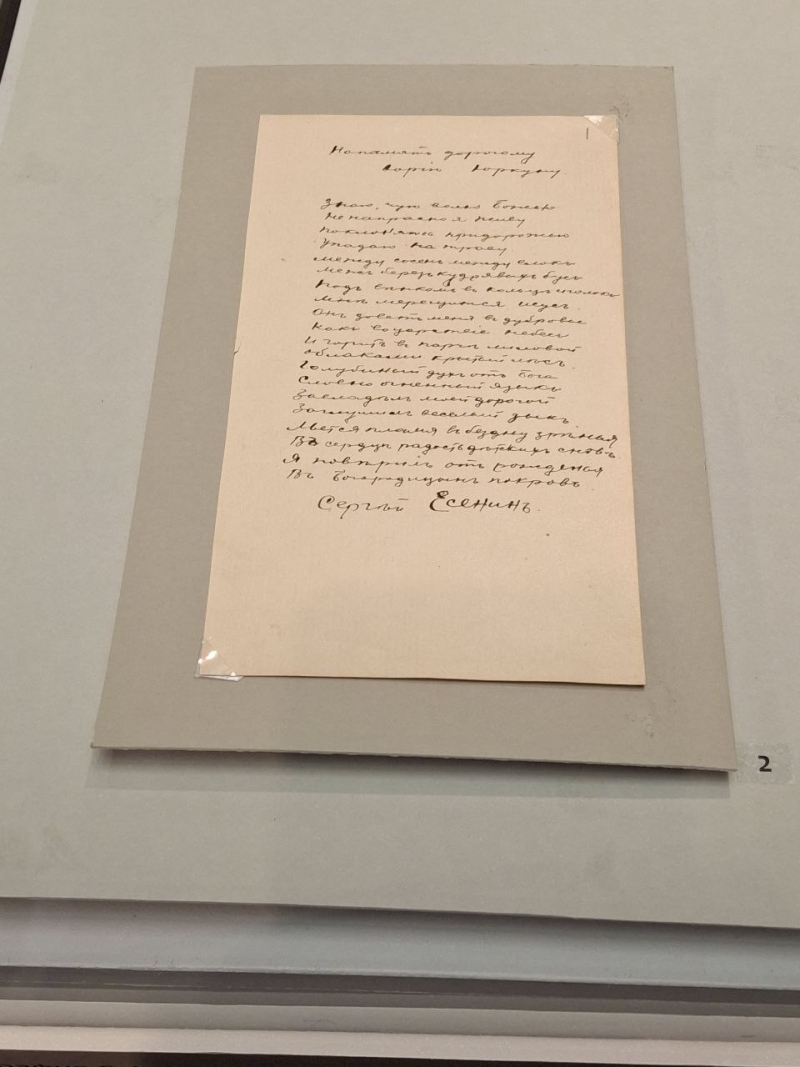 На память дорогому
Юрію Юркуну
Знаю, чую волю Божью
Не напрасно я живу
Поклоняюсь придорожью
Упадаю на траву.
Между сосенъ между елокъ
Межъ березъ кудрявыхъ бусъ
Подъ вѣнкомъ въ кольцѣ иголокъ
Мнѣ мерещится исусъ.
Онъ зоветъ меня в дубровы
Какъ во царствіе небесъ
И горитъ в парчѣ лиловой
Облаками крытый лѣсъ.
Голубиный духъ отъ Бога
Словно огненный языкъ
Завладѣлъ моей дорогой
Заглушилъ веселый зыкъ.
Льется пламя въ бездну зрѣнья
Въ сердцѣ радость дѣтскихъ сновъ.
Я повѣрилъ отъ рожденья
Въ Богородицынъ покровъ.
Сергѣй Есенинъ.
2